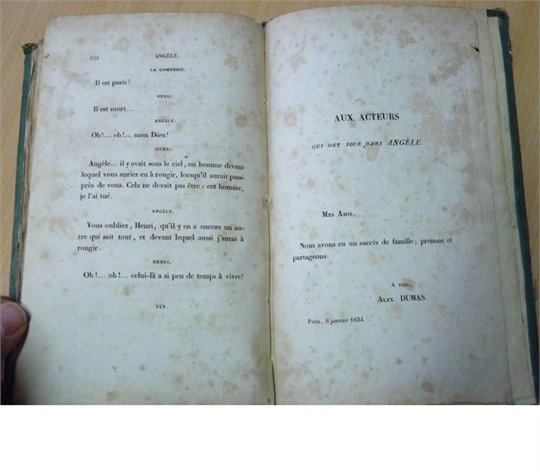 ANGÈLE.
LA COMTESSE.
Il est parti?
HENRI.
Il est mort...
ANGÈLE.
Oh!... oh!... mon Dieu!
HENRI.
Angèle... il y avait sous le ciel, un homme devant
lequel vous auriez eu à rougir, lorsqu'il aurait passé
près de vous. Cela ne devait pas être : cet homme,
je l'ai tué.
ANGÈLE.
Vous oubliez, Henri, qu'il y en a encore un au-
tre qui sait tout, et devant lequel aussi j'aurai à
rougir.
HENRI.
Oh!... oh!... celui-là a si peu de temps à vivre!
FIN.
AUX ACTEURS
QUI ONT JOUÉ DANS ANGÈLE.
MES AMIS,
Nous avons eu un succès de famille; prenons et
partageons.
A vous,
ALEX. DUMAS.
Paris, 8 janvier 1834